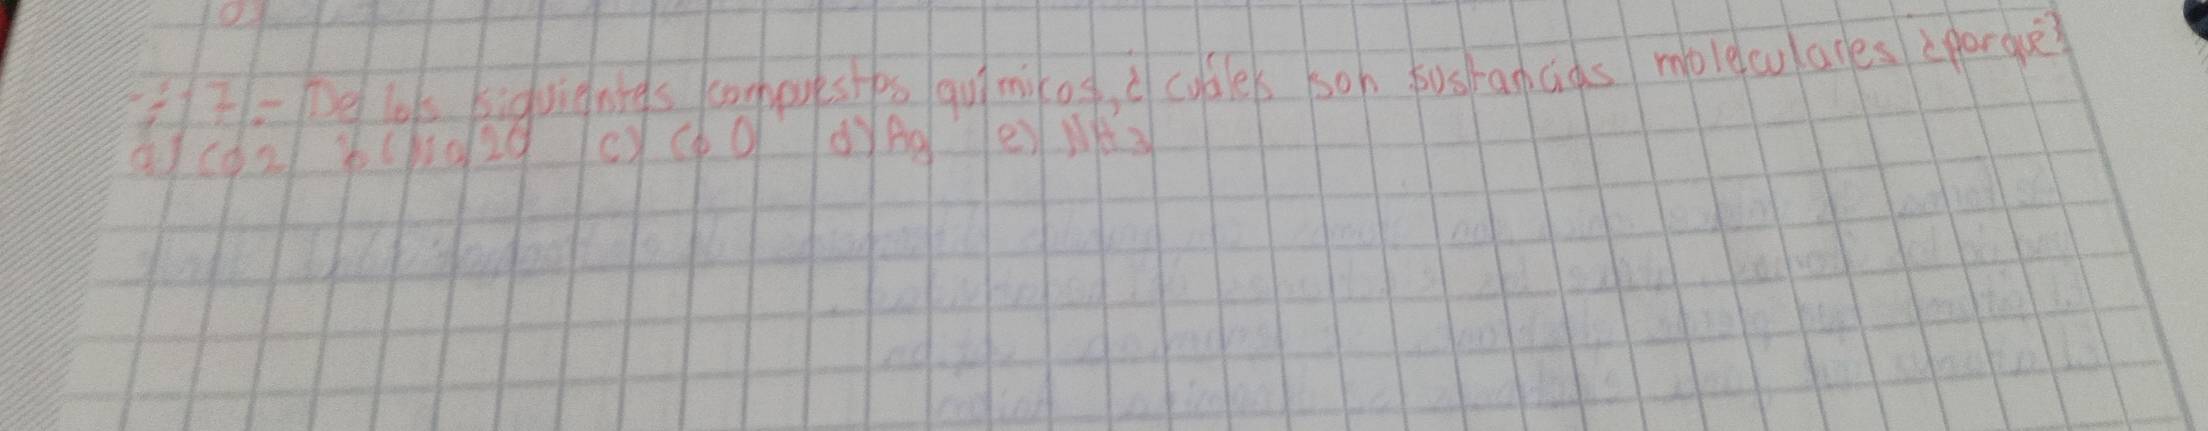 7 = De los siguientes compuestos químicos, ¿ cuáles son sustancias moleculares ¿porqué?
a) CO2 b( Na2O c) CO O d) Ag e) NH3